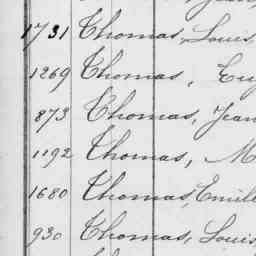 1731 Thomas, Louis
1269 Thomas,
873 Thomas, Jean
1192 Thomas,
1680 Thomas, Emile
930 Thomas, Louis